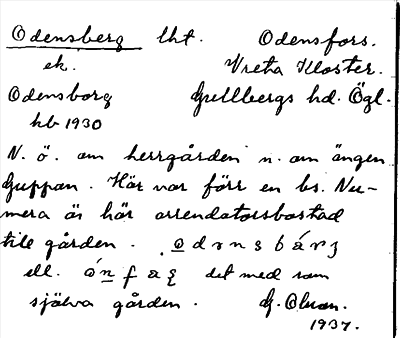 Odensberg lht. Odensfors.
ek. Vreta Kloster.
Odensborg Gullbergs hd. Ögl.
hb 1930
N. ö. om herrgården n. om ängen
Guppan. Här var förr en bs. Nu-
mera är här arrendatorsbostad
till gården.
ell. det med som
själva gården. G. Olson.
1937.